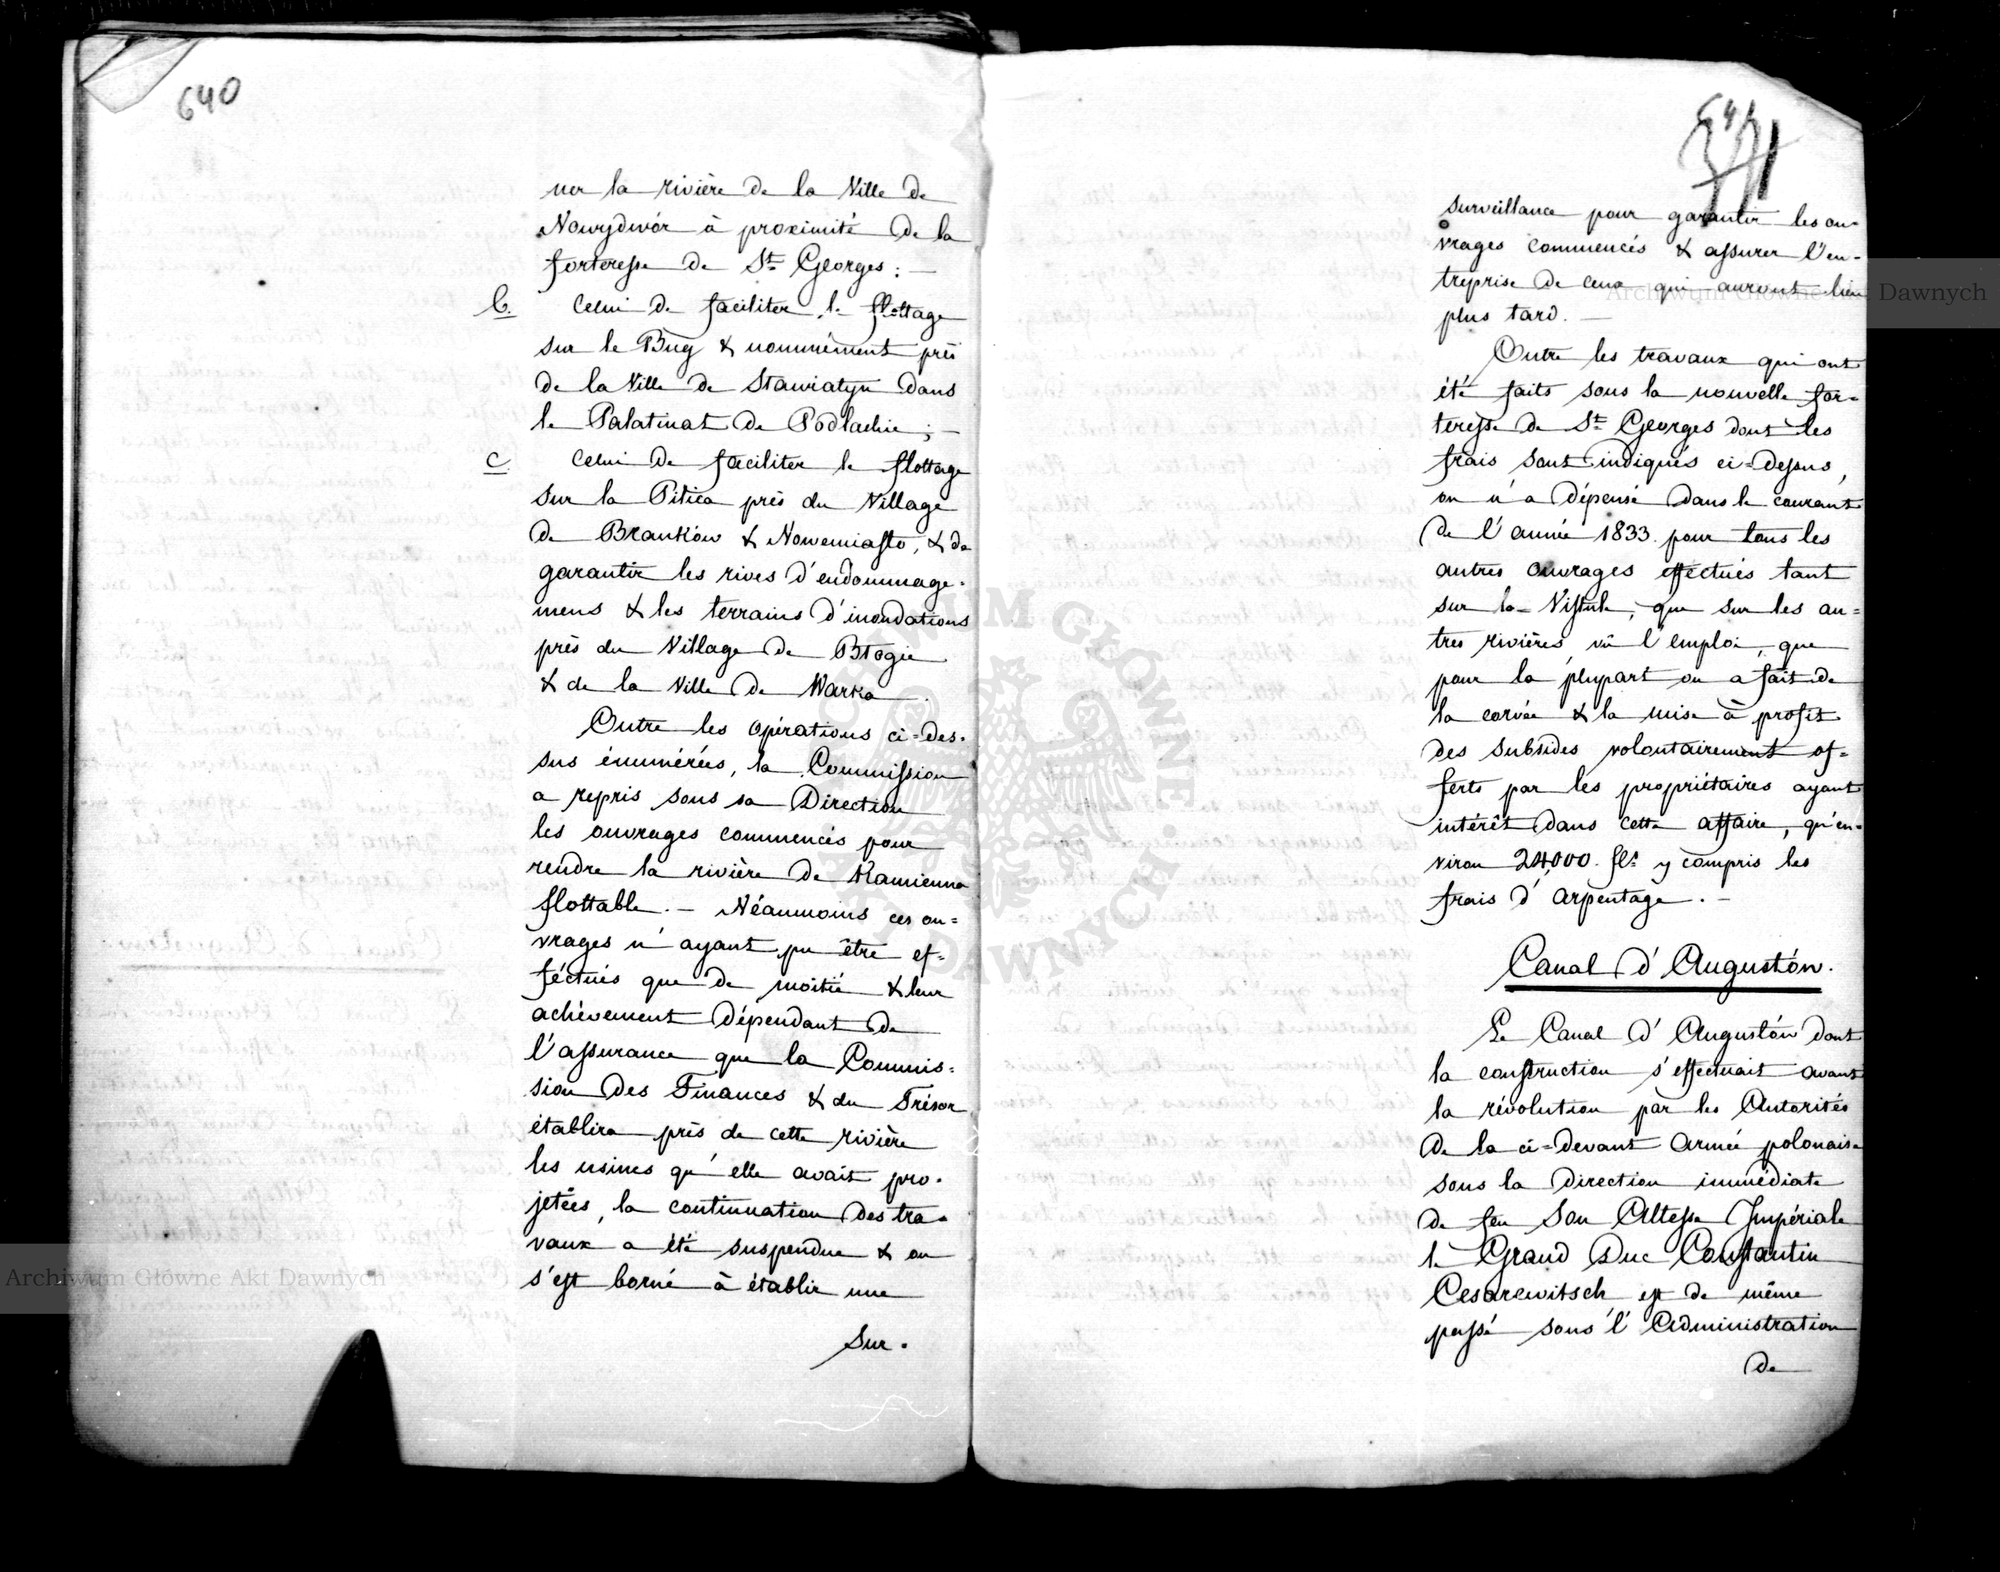 640
ner la rivière de la Ville de
Nowydwór à proximité de la
forteresse de St Georges: —
b. Celui de faciliter le flottage
sur le Bug & nommément près
de la Ville de Stawiatyn dans
le Palatinat de Podlachie; —
c Celui de faciliter le flottage
sur la Pilica près du Village
de Branków & Nowemiasto, & de
garantir les rives d'endommage-
mens & les terrains d'inondations
près du Village de Btogie
& de la Ville de Warka.
Outre les opérations ci-des-
sus énumérées, la Commission
a repris sous sa Direction
les ouvrages commencés pour
rendre la rivière de Kamienna
flottable. — Néanmoins ces ou-
vrages n'ayant pu être ef-
féctués que de moitié & leur
achèvement dépendant de
l'assurance que la Commis-
sion des Finances & du Trésor
établira près de cette rivière
les usines qu'elle avait pro-
jetées, la continuation des tra-
vaux a été suspendue & on
s'est borné à établir une
Sur-
surveillance pour garantir les ou-
vrages commencés & assurer l'en-
treprise de ceux qui auront lieu
plus tard. —
Outre les travaux qui ont
été faits sous la nouvelle for-
teresse de St Georges dont les
frais sont indiqués ci-dessus,
on n'a dépensé dans le courant
de l'année 1833 pour tous les
autres ouvrages effectués tant
sur la Vistule, que sur les au-
tres rivières, vû l'emploi, que
pour la plupart on a fait de
la corvée & la mise à profit
des subsides volontairement of-
ferts par les propriétaires ayant
intérêt dans cette affaire, qu'en-
viron 24,000 fls y compris les
frais d'arpentage. —
Canal d'Augustón.
Le Canal d'Augustón dont
la construction s'effectuait avant
la révolution par les Autorités
de la ci-devant Armée polonaise
sous la direction immédiate
de feu Son Altesse Impériale
le Grand Duc Constantin
Cesarewitsch est de même
passé sous l'Administration
de
Archiwum Główne Akt Dawnych
Archiwum Główne Akt Dawnych
ARCHIWUM GŁÓWNE AKT DAWNYCH